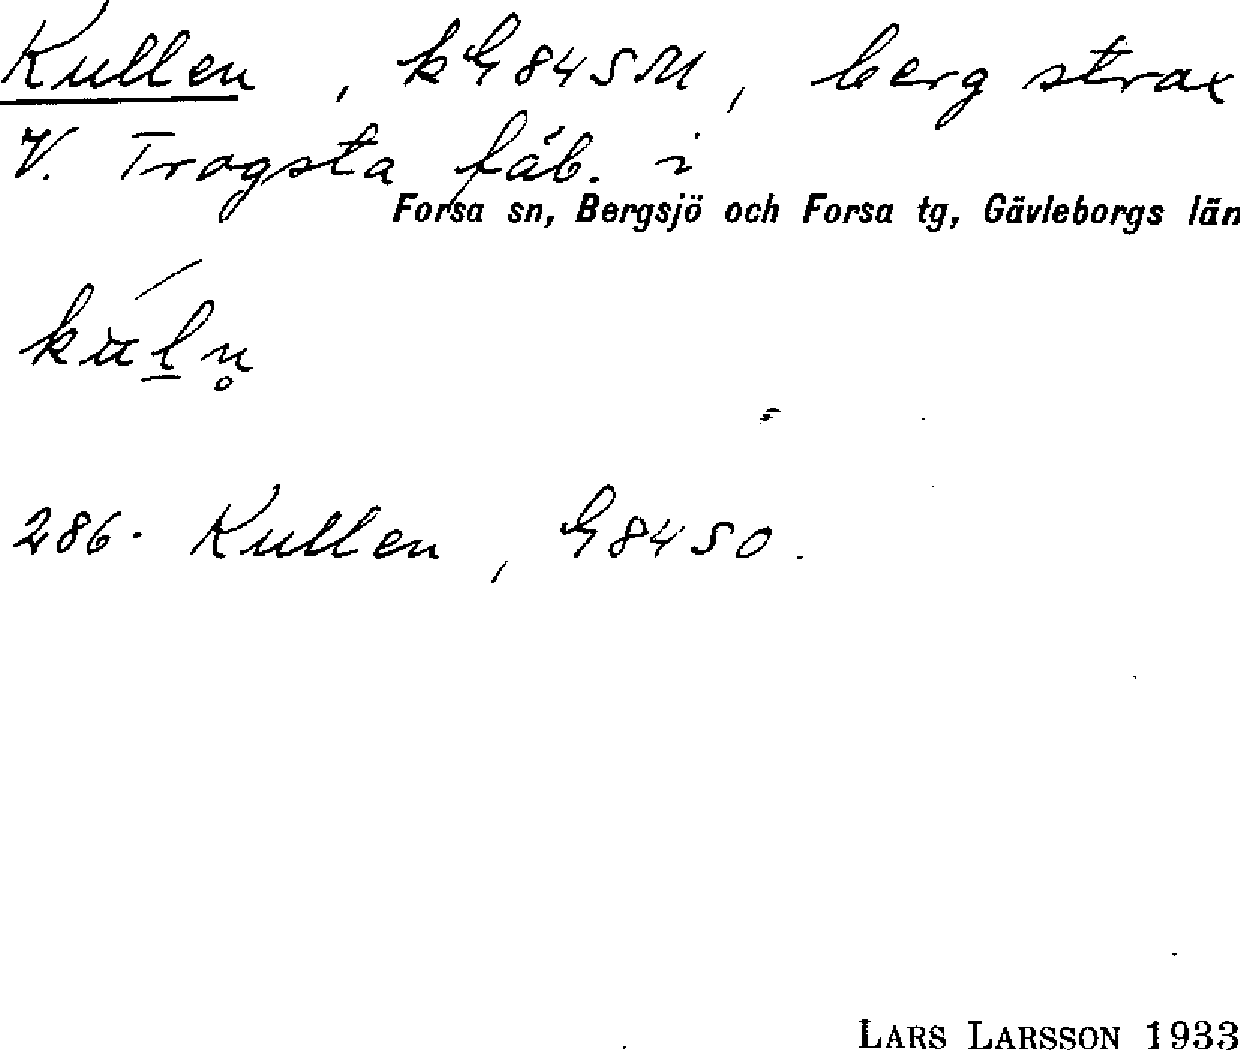 Kullen, kG845M, berg strax
V. Trogsta fäb. i
Forsa sn, Bergsjö och Forsa tg, Gävleborgs län
286. Kullen, G8450.
LARS LARSSON 1933